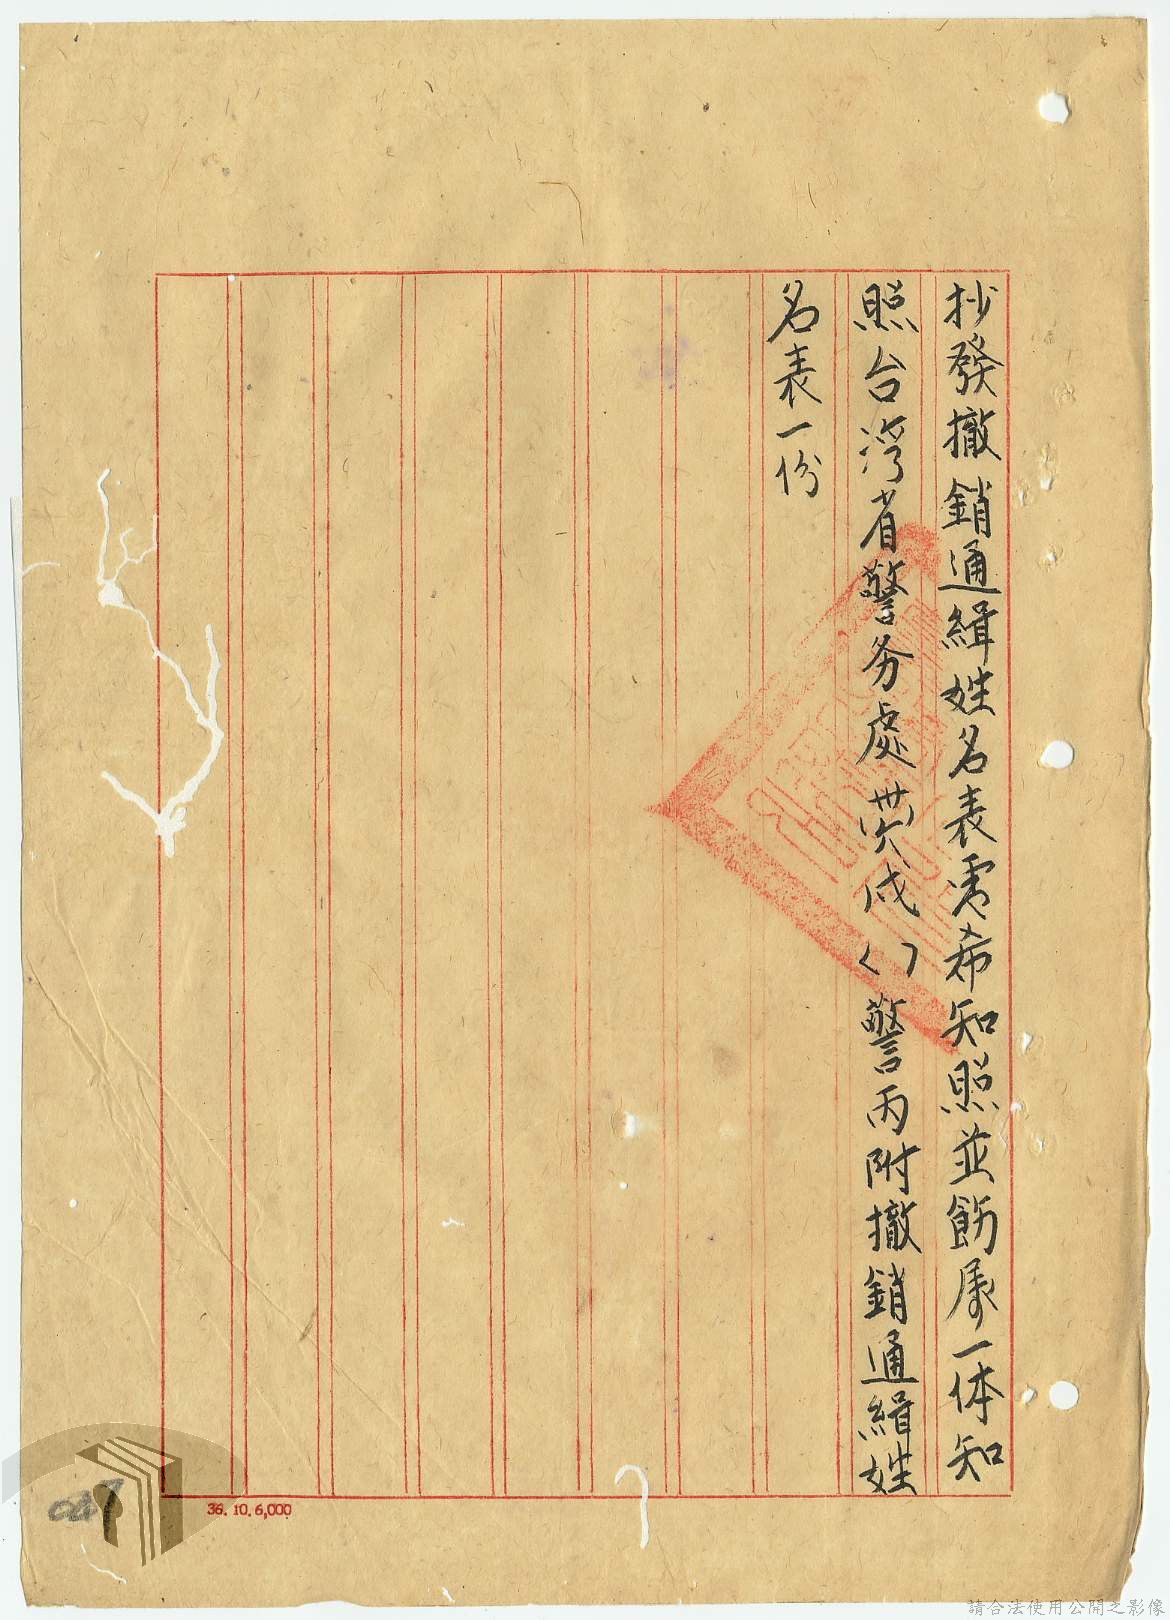 抄發撤銷通緝姓名表電希知照並飭屬一体知
照台湾省警务處 戌( )警丙附撤銷通緝姓
名表一份
36.10.6,000
請合法使用公開之影像